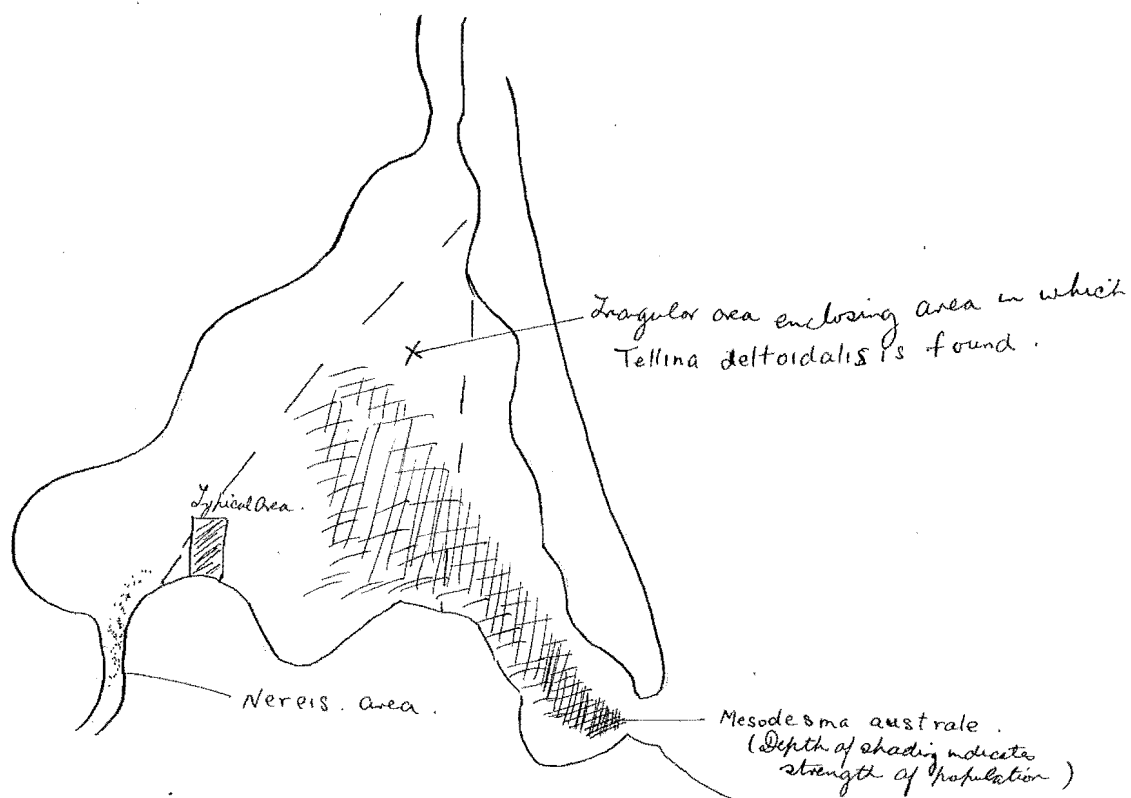 Iragular area enclosing area in which
Tellina deltoidalis is found.
Typical Area.
Nereis. area.
Mesodesma australe.
(Depth of shading indicates
strength of population)